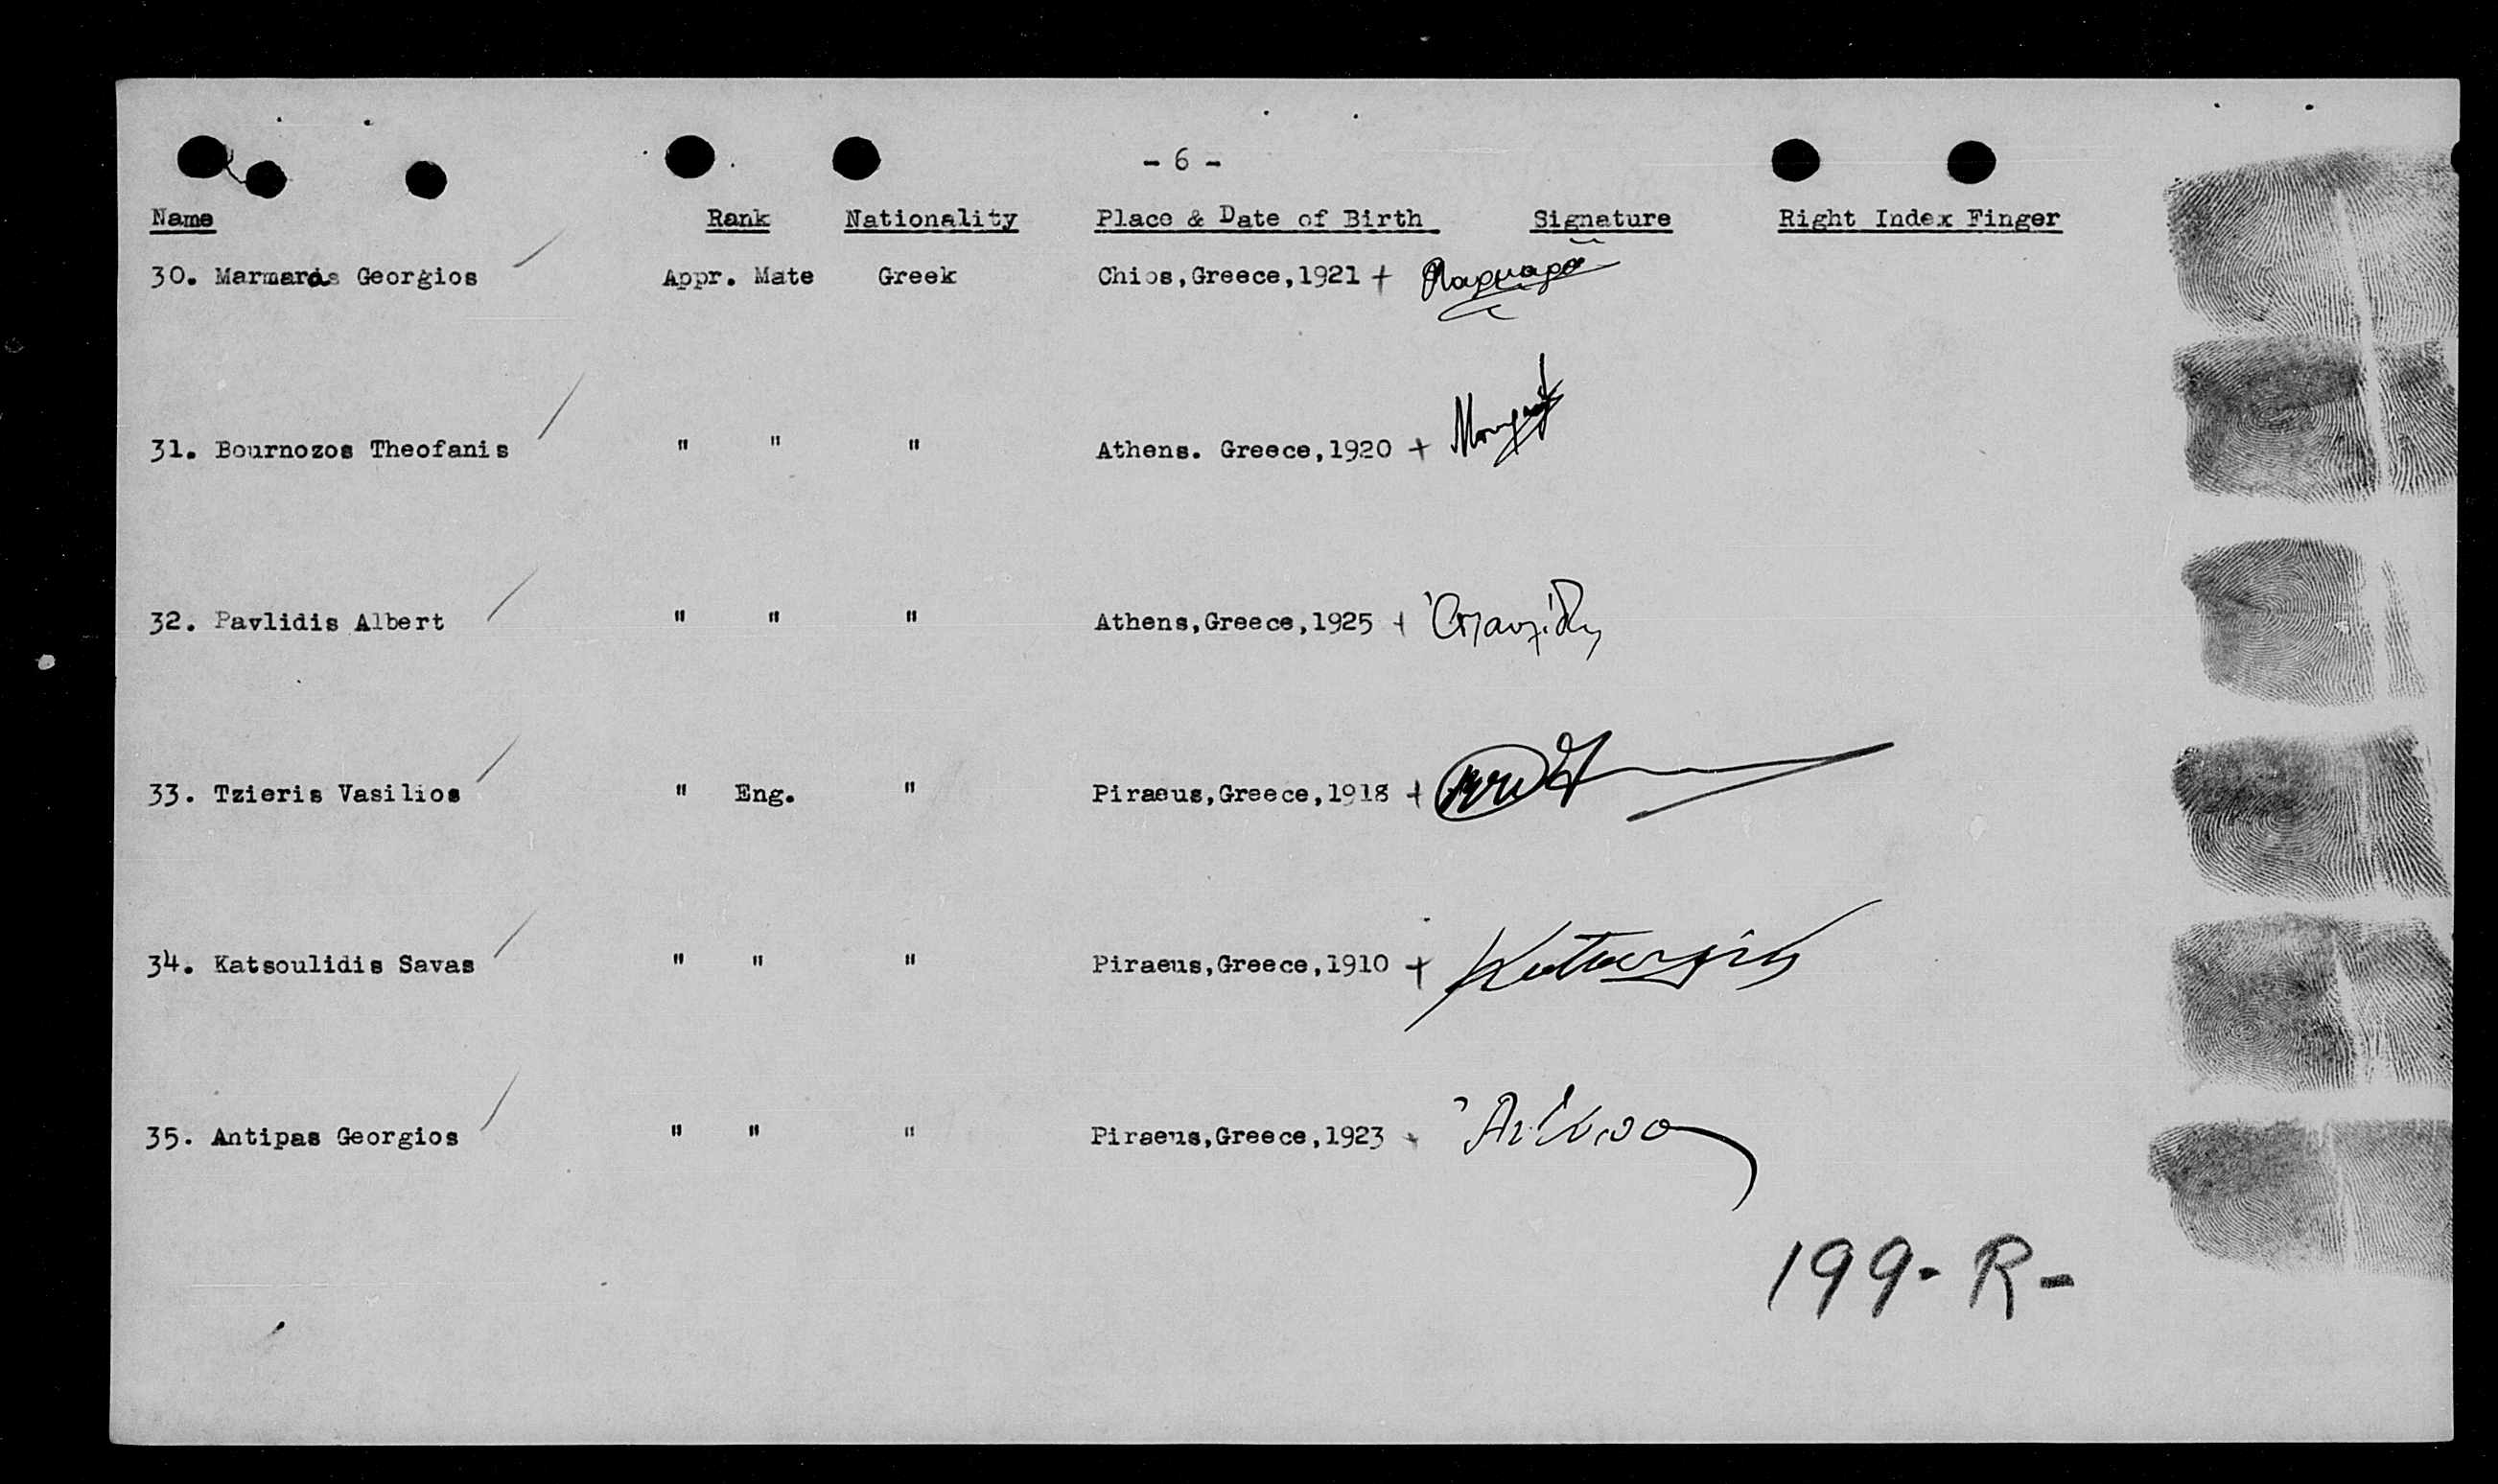 - 6 -
Name Rank Nationality Place & Date of Birth Signature Right Index Finger
30. Marmaras Georgios Appr. Mate Greek Chios,Greece,1921 +
31. Bournozos Theofanis " " " Athens. Greece,1920 +
32. Pavlidis Albert " " " Athens,Greece,1925 +
33. Tzieris Vasilios " Eng. " Piraeus,Greece,1918 +
34. Katsoulidis Savas " " " Piraeus,Greece,1910 +
35. Antipas Georgios " " " Piraeus,Greece,1923 +
199- R-